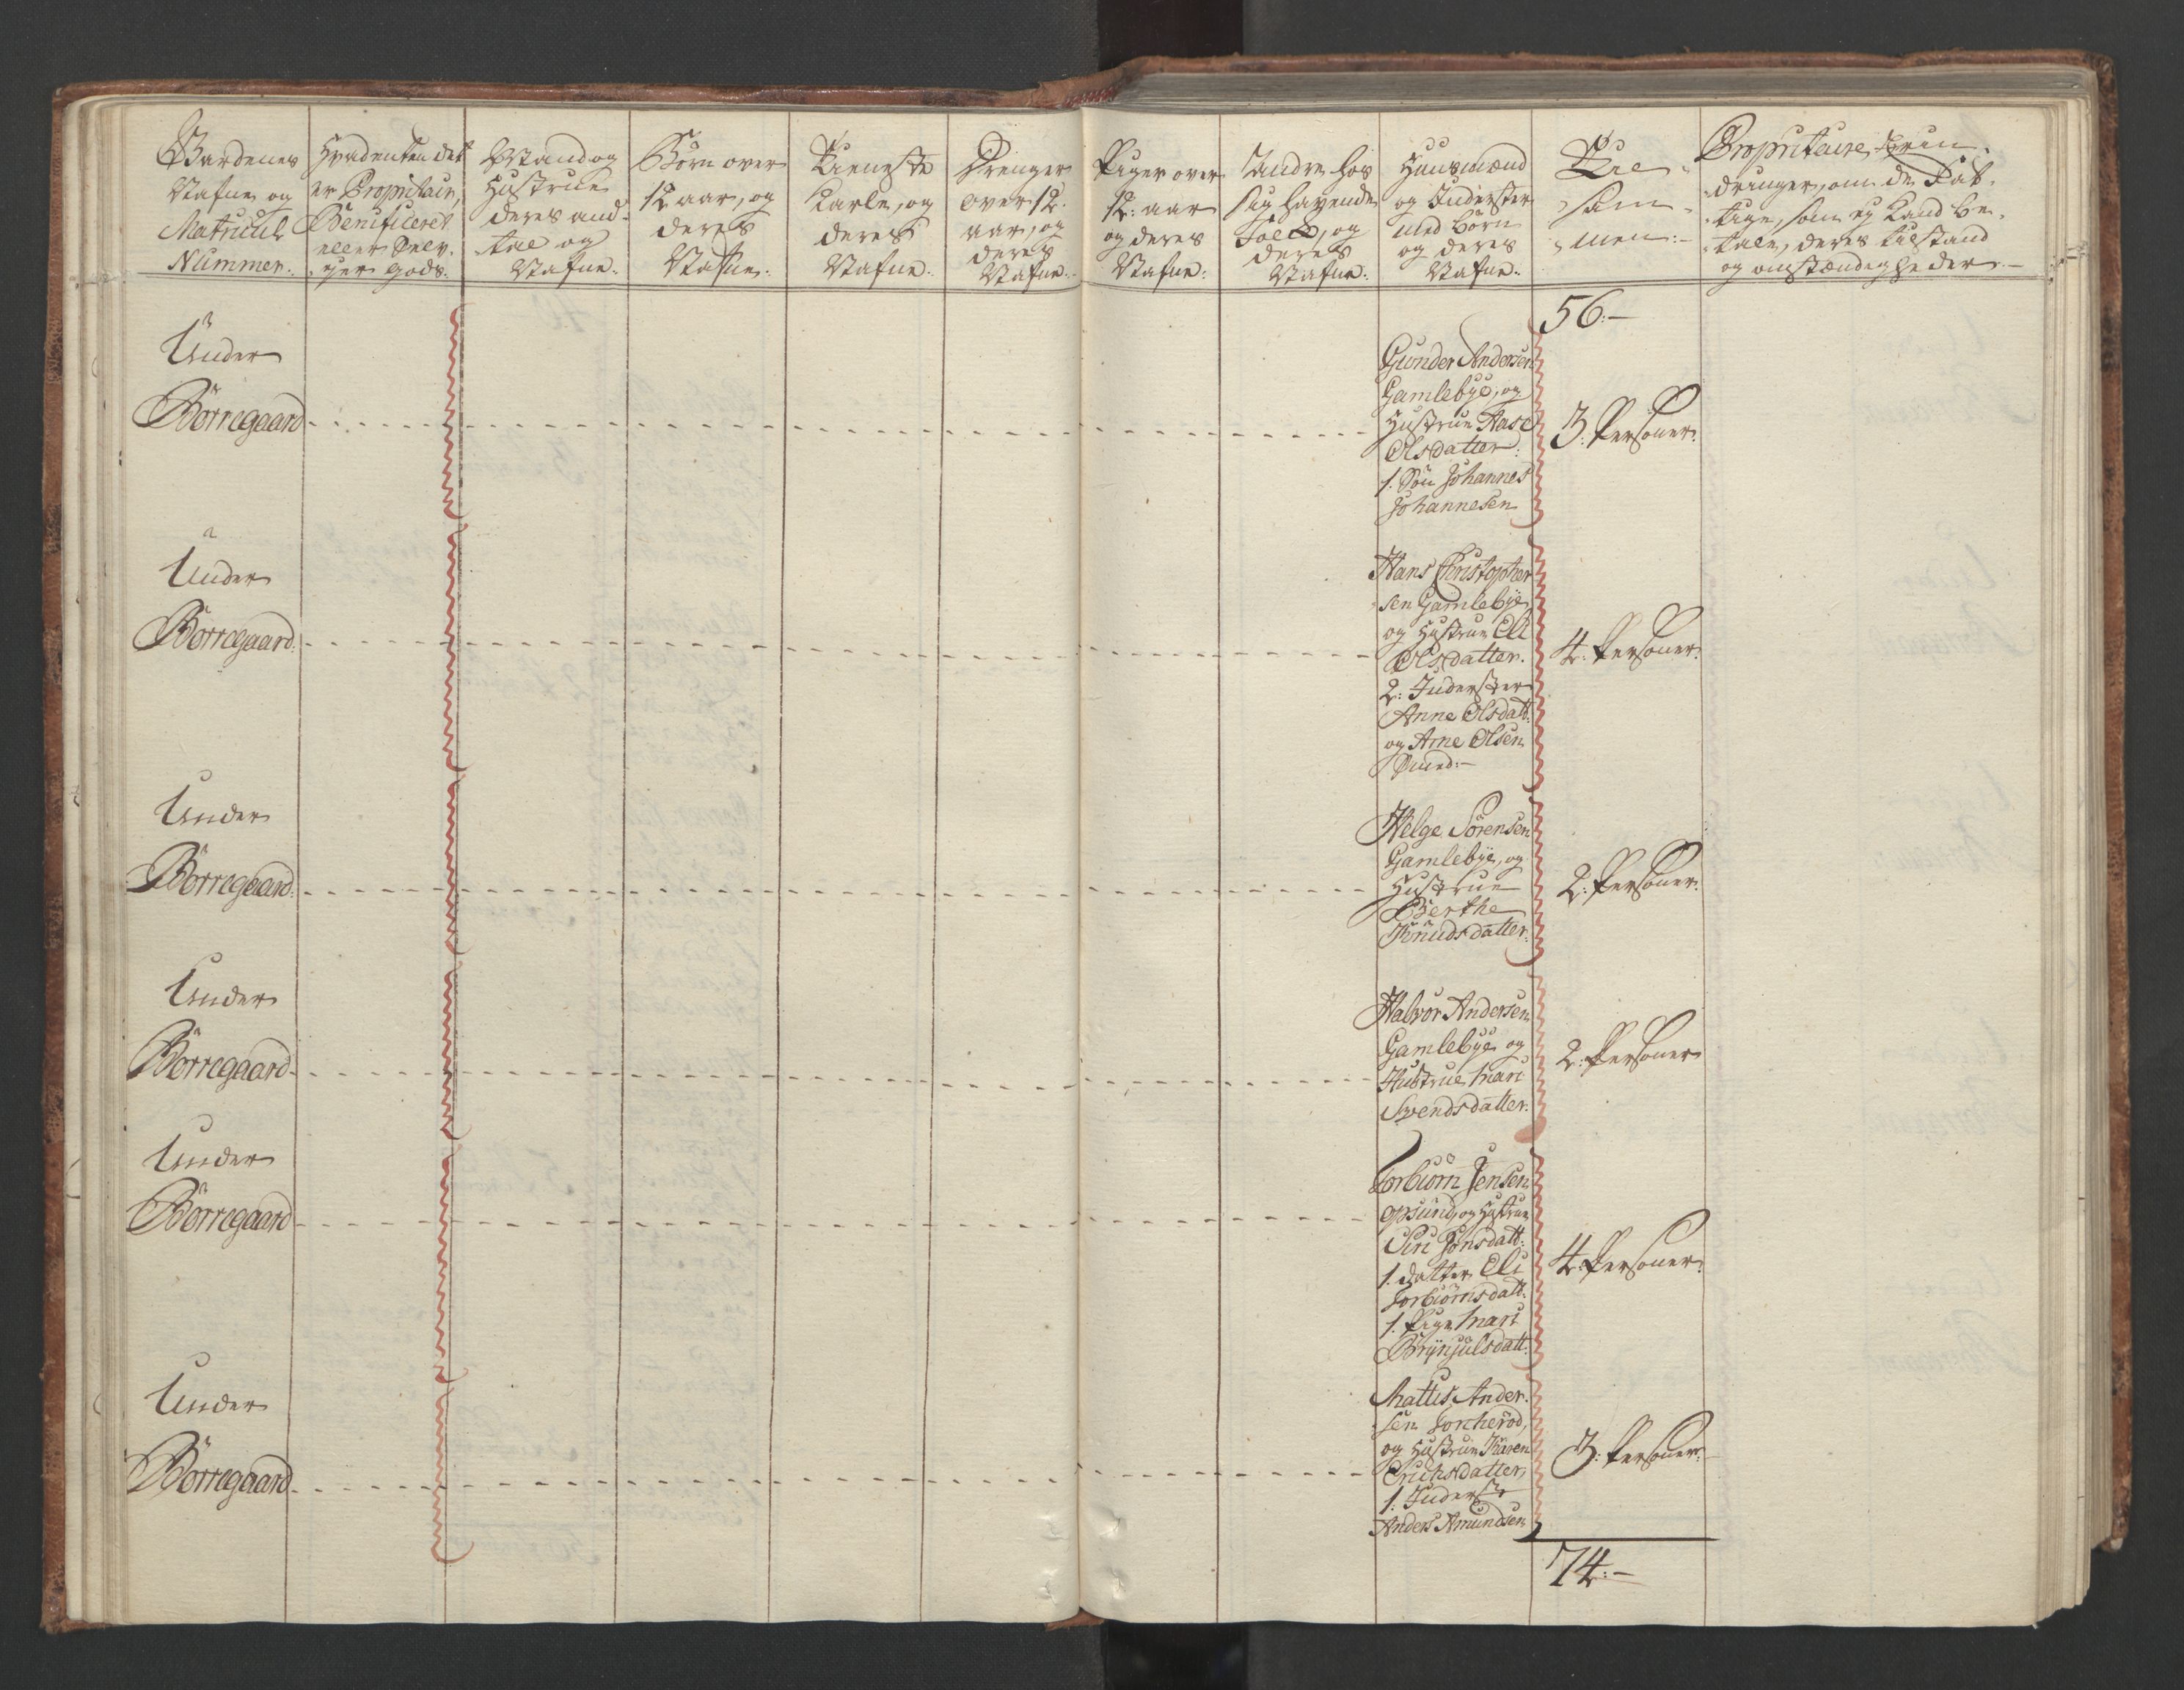 Gaardenes
Nafne og
Matricul
Nummer.
Hvadenten det
er Propritair,
Benificeret
eller Selv-
Ejer Gods.
Mand og
Hustrue
deres and-
tal og
Nafne.
Børn over
12 aar, og
deres
Nafne.
Tieneste
Karle, og
deres
Nafne.
Drenger
over 12.
aar, og
deres
Nafne.
Piger over
12: aar
og deres
Nafne:
Andre hos
sig havende
Folck, og
deres
Nafne:
Huusmænd
og Inderster
med Børn
og deres
Nafne:
Til-
sam-
men:
Propritaire, Erin-
dringer, om de Fat-
tige, som ej kand be-
tale, deres tilstand
og omstændigheder
56:
Under
Börregaard
Gunder Andersen
Gamlebÿe, og
Hustrue Aase
Olsdatter:
1. Søn Johannes
Johannesen
3: Personer.
Under
Börregaard.
Hans Christopher
sen Gamlebÿe,
og Hustrue Eli
Olsdatter.
2: Inderster
Anne Olsdatt:
og Arne Olsen
4: Personer.
Under
Börregaard.
Helge Sörensen
Gamlebÿe, og
Hustrue
Berthe
Knudsdatter.
2: Personer.
Under
Börregaard
Halvor Andersen
Gamlebÿe og
Hustrue Mari
Svendsdatter.
2: Personer
Under
Börregaard
Torbiörn Jensen
Opsund, og Hustrue
Siri Jonsdatt:
1. datter Eli
Torbiörnsdatt:
1. Pige Mari
Brÿnjulsdatt:
4: Personer.
Under
Börregaard
Mattis Ander-
sen Torcheröd,
og Hustrue Karen
Erichsdatter,
1: Inderste
Anders Amundsen
3: Personer.
74: